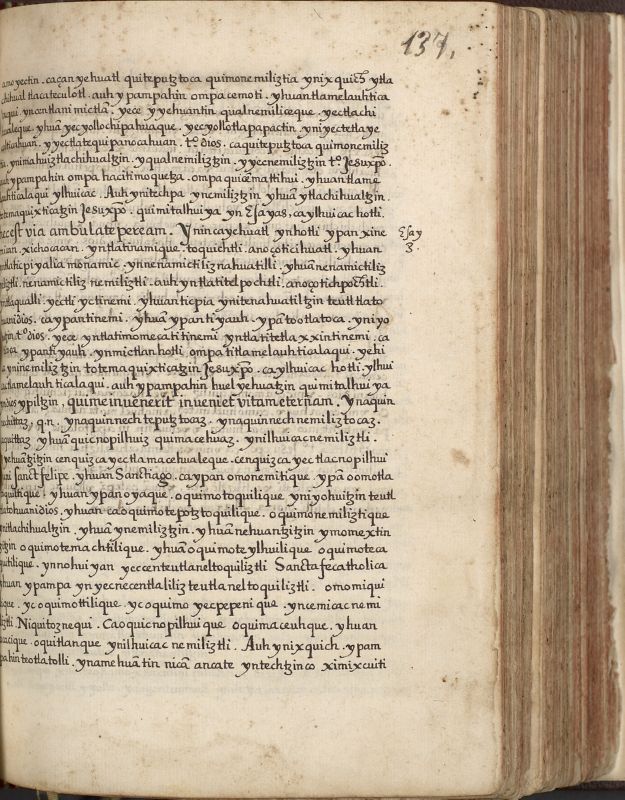 137,
ano yectin . caçan yehuatl quiteputztoca quimonemiliztia ynixquich ytla
chihual tlacateculotl . auh y pampahin ompa cemoti . yhuan tlamelauhtica
laqui . yn centlani mictlã . yece y yehuantin qualnemiliceque . yectlachi
hualeque . yhuã yecyollochipahuaque . yecyollotlapapactin . yniyectetlaye
coltiahuan . yyectlatequipanocahuan . tº. dios . caquiteputztoca quimonemiliz
tia . ynimahuiztlachihualtzin . yqualnemiliztzin . yyecnemiliztzin tº. Jesuxpõ .
auh y pampahin ompa hacitimoquetza . ompa quicẽmattihui . yhuan tlame
lauhticalaqui ylhuicac . Auh ynitechpa ynemiliztzin yhuã ytlachihualtzin .
totemaquixticatzin Jesuxpõ . quimitalhuiya yn Esayas, ca ylhuicac hotli .
hec est via ambulate per eam . Ynin cayehuatl ynhotli ypan xine
mican . xichocacan . yntlatinamique . toquichtli . anoçoticihuatl . yhuan
yntlaticpiyalia monamic . ynnenamictiliznahuatilli . yhuã nenamictiliz
neliztli . nenamictiliznemiliztli . auh yntlatitelpochtli . anoçotichpochtli .
yntlaqualli . yectli yctinemi . yhuanticpia ynitenahuatiltzin teutl tlato
huani dios . caypantinemi . yhuã ypantiyauh . ypã tootlatoca . yniyo
huitzin tº dios . yece yntlatimomecatitinemi yntlatitetlaxxintinemi . ca
ypantiyauh . ynmictlan hotli . ompa titlamelauhticalaqui . yehi
ca ynin nemiliztzin totemaquixticatzin Jesuxpõ . ca ylhuicac hotli . ylhui
cactlamelauhticalaqui . auh ypampahin huel yehuatzin quimitalhuiya
yn dios ypiltzin, qui me invenerit inveniet vitam eternam . Ynaquin
nechittaz, q.n. ynaquin nechteputztocaz . ynaquin nechnemiliztocaz .
quittaz yhuã quicnopilhuiz quimacehuaz . ynilhuicac nemiliztli .
yehuãtzitzin cenquizca yectlamacehualeque . cenquizca yectlacnopilhui
Sanct felipe . yhuan Sanctiago . caypan omonemitique . ypã oomotla
toquiltique . yhuan ypan oyaque . oquimotoquilique yniyohuitzin teutl
tlatohuani dios . yhuan ca oquimotepotztoquilique . oquimonemiliztique
ynitlachihualtzin . yhuã ynemiliztzin . yhuan nehuantzitzin ymomextin
tzitzin oquimotemachtilique . yhuã oquimoteylhuilique oquimoteca
quitilique . ynnohuiyan yeccenteutlaneltoquiliztli Sancta fe catholica
yhuan ypampa yn yecnecentlaliliz teutlaneltoquiliztli . omomiqui
lique . yc oquimottilique . yc oquimoyecpepenique . yncemiacnemi
liztli . Niquitoznequi . Ca oquicnopilhuique oquimaceuhque . yhuan
oacique . oquitlanque ynilhuicac nemiliztli . Auh ynixquich . ypam
pahin teotlatolli . yn amehuãtin nicã ancate yntechtzinco ximixcuiti
Esay
3.